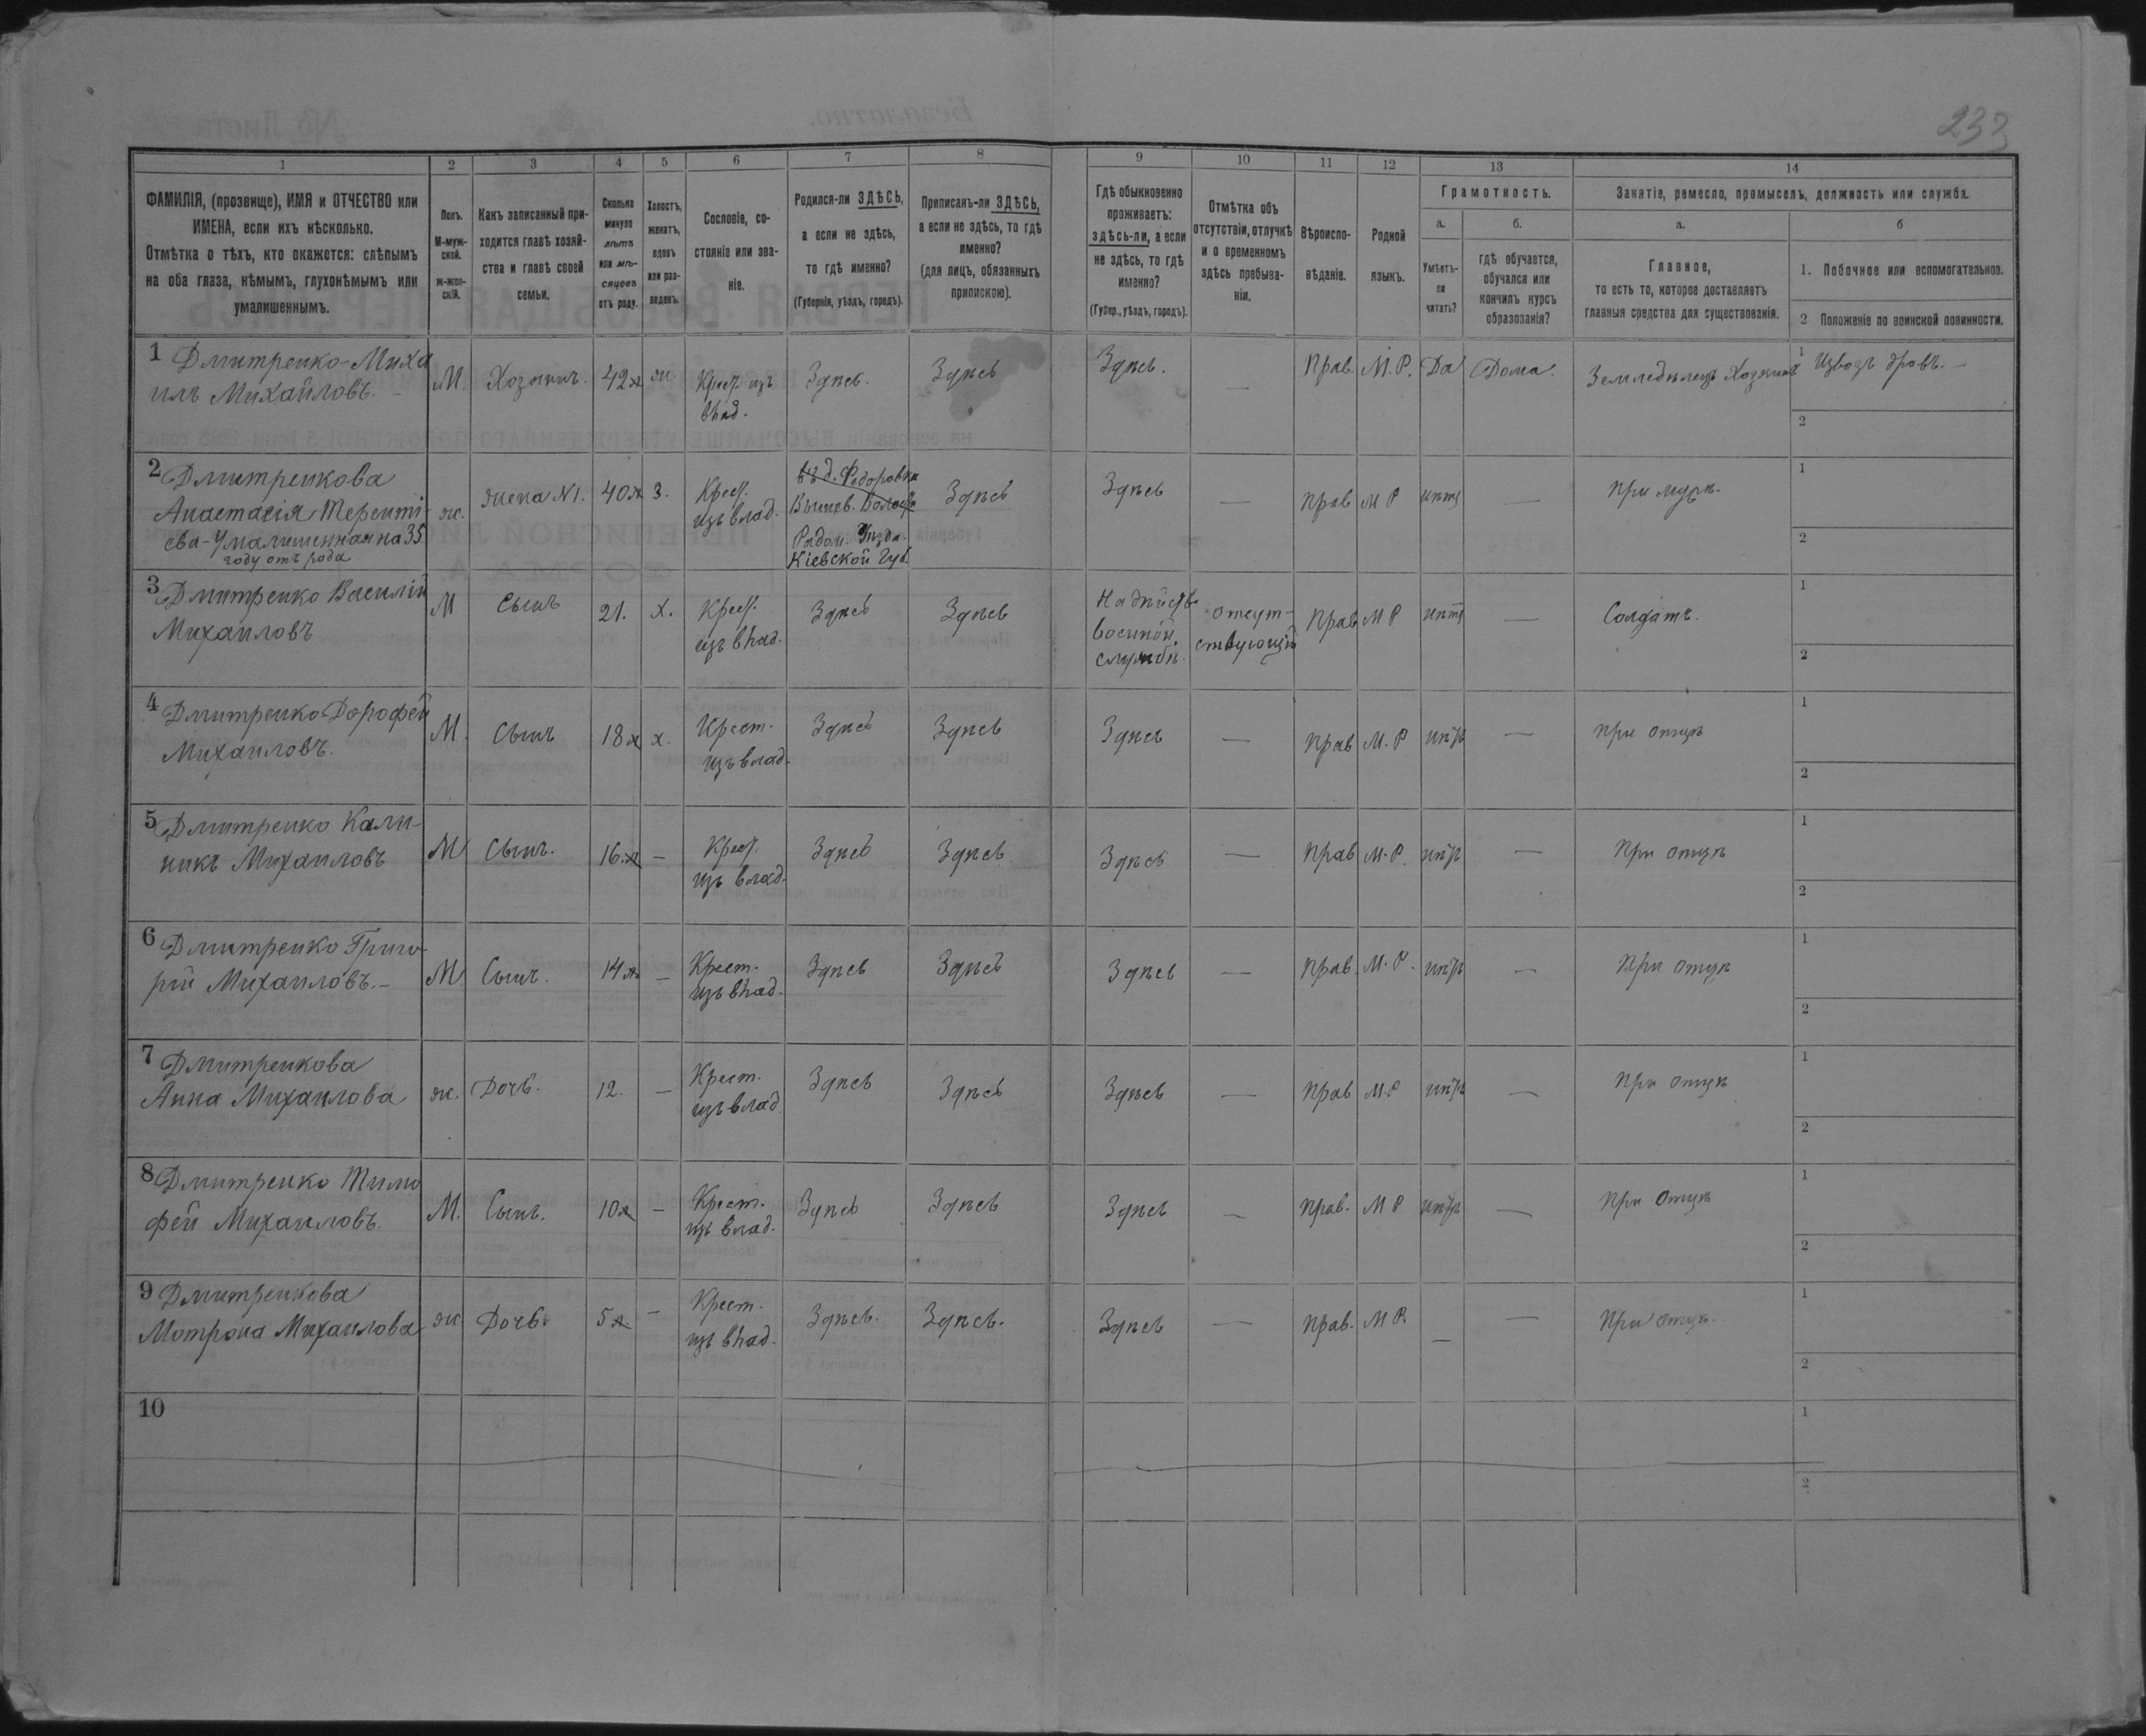 233
1
2
3
4
5
6
7
8
9
10
11
12
13
14
ФАМИЛІЯ, (прозвище), ИМЯ и ОТЧЕСТВО или
ИМЕНА, если ихъ нѣсколько.
Отмѣтка о тѣхъ, кто окажется: слѣпымъ
на оба глаза, нѣмымъ, глухонѣмымъ или
умалишеннымъ.
Полъ.
М-муж-
ской.
ж-жен-
скій.
Какъ записанный при-
ходится главѣ хозяй-
ства и главѣ своей
семьи.
Сколько
минуло
лѣтъ
или мѣ-
сяцевъ
отъ роду.
Холостъ,
женатъ,
вдовъ
или раз-
веденъ.
Сословіе, со-
стояніе или зва-
ніе.
Родился-ли ЗДѢСЬ,
а если не здѣсь,
то гдѣ именно?
(Губернія, уѣздъ, городъ).
Приписанъ-ли ЗДѢСЬ,
а если не здѣсь, то гдѣ
именно?
(для лицъ, обязанныхъ
припискою).
Гдѣ обыкновенно
проживаетъ:
здѣсь-ли, а если
не здѣсь, то гдѣ
именно?
(Губер., уѣздъ, городъ).
Отмѣтка объ
отсутствіи, отлучкѣ
и о временномъ
здѣсь пребыва-
ніи.
Вѣроиспо-
вѣданіе.
Родной
языкъ.
Грамотность.
а.
Умѣетъ-
ли
читать?
б.
гдѣ обучается,
обучался или
кончилъ курсъ
образованія?
Занятіе, ремесло, промыселъ, должность или служба.
а.
Главное,
то есть то, которое доставляетъ
главныя средства для существованія.
б
1. Побочное или вспомогательное.
2 Положеніе по воинской повинности.
1 Дмитренко-Миха
илъ Михайловъ. –
М. Хозяинъ. 42 л ж Крест. изъ
влад.
Здѣсь. Здѣсь Здѣсь. — Прав. М.Р. Да Дома. Земледѣлецъ Хозяинъ 1 Извозъ дровъ. –
2
2 Дмитренкова
Анастасія Теренті-
ева-Умалишенная на 35
году отъ рода
ж. жена N1. 40 л З. Крест.
изъ влад.
въ д. Федоровка
Вышев. Волости
Радом. Уѣзда.
Кіевской Губ.
Здѣсь Здѣсь — прав М Р нѣтъ — при мужѣ. 1
2
3 Дмитренко Василій
Михаиловъ
М Сынъ 21. х. Крест.
изъ влад.
Здѣсь Здѣсь
военной
службѣ.
отсут-
ствующій
Прав М Р нѣтъ — Солдатъ. 1
2
4 Дмитренко Дорофей
Михаиловъ.
М. Сынъ 18 л х. Крест.
изъ влад.
Здѣсь Здѣсь Здѣсь — прав М. Р нѣтъ — при отцѣ 1
2
5 Дмитренко Кали-
никъ Михаиловъ
М Сынъ. 16. л — Крест.
изъ влад.
Здѣсь Здѣсь Здѣсь — Прав М. Р. нѣтъ — При отцѣ 1
2
6 Дмитренко Григо-
рій Михаиловъ. –
М. Сынъ. 14 л — Крест.
изъ влад.
Здѣсь Здѣсь Здѣсь — прав. М. Р. нѣтъ — При отцѣ 1
2
7 Дмитренкова
Анна Михаилова
ж. Дочь. 12. — Крест.
изъ влад
Здѣсь Здѣсь Здѣсь — Прав М. Р нѣтъ — При отцѣ 1
2
8 Дмитренко Тимо
фей Михаиловъ.
М. Сынъ. 10 л — Крест.
изъ влад.
Здѣсь Здѣсь Здѣсь — прав. М Р нѣтъ — При отцѣ 1
2
9 Дмитренкова
Мотрона Михаилова
ж Дочь. 5 л — Крест.
изъ влад.
Здѣсь. Здѣсь. Здѣсь — прав. М Р. — — При отцѣ. 1
2
10
1
2